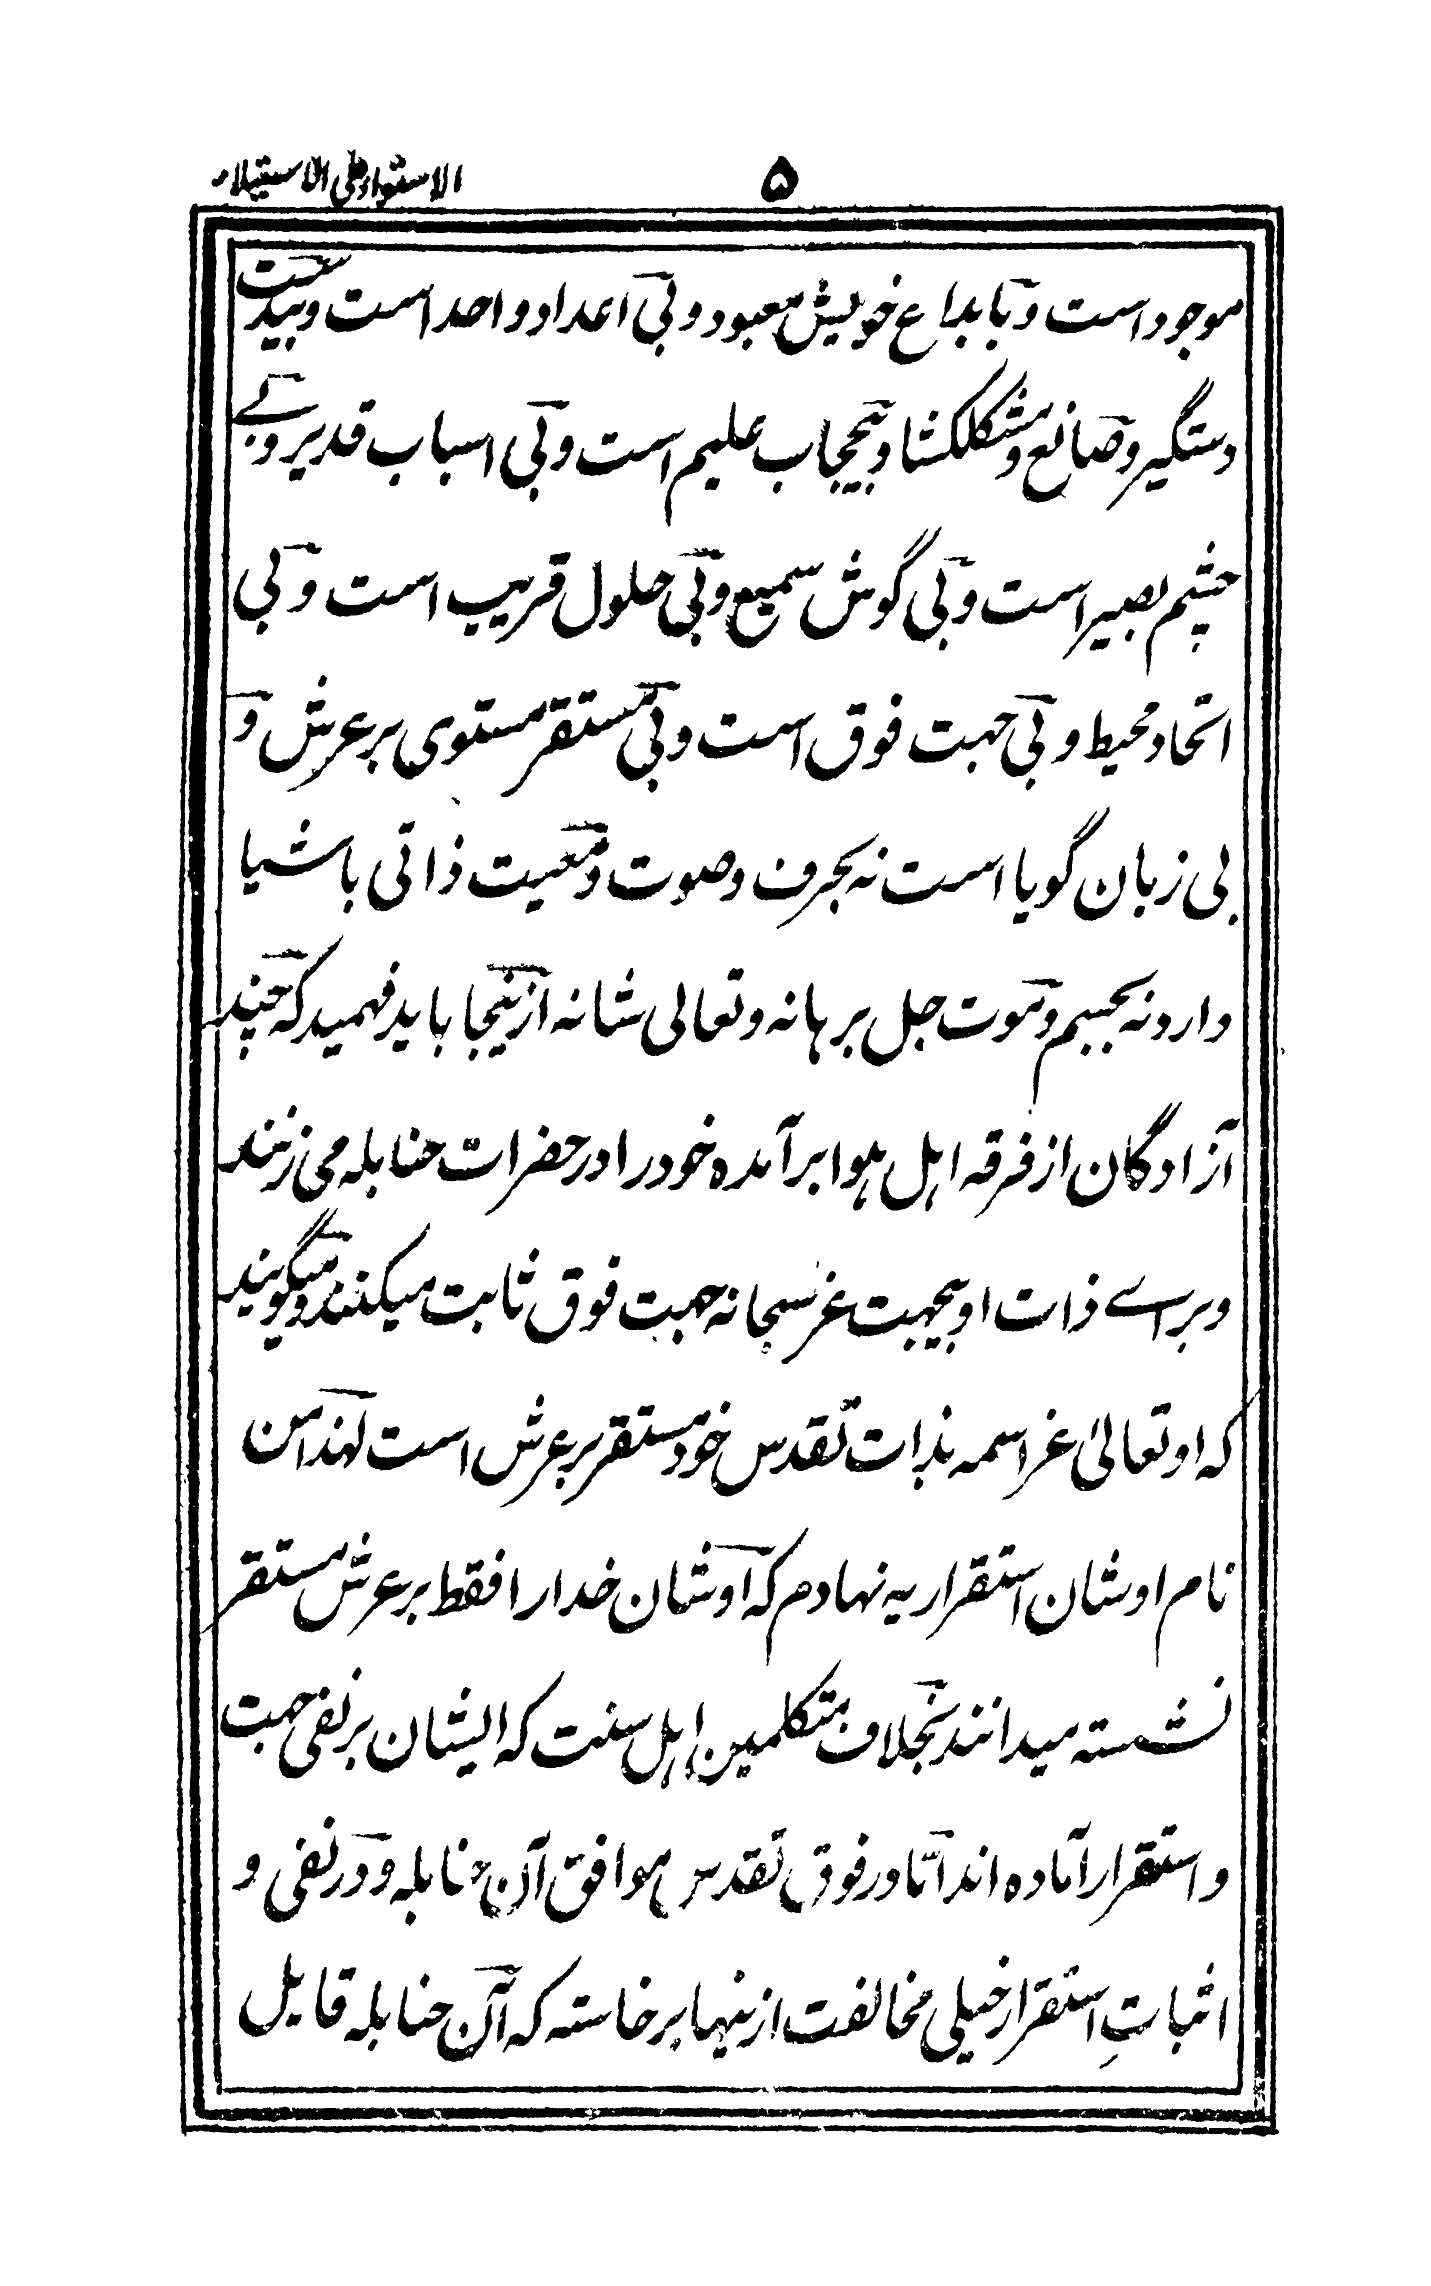 ۵
الاستواء علی الاستیلاء
موجود است و بابداع خویش معبود و بی اعداد واحد است و بیدست
دستگیر و صانع و مشکلکشا و بیحجاب علیم است و بی اسباب قدیر و بے
چشم بصیر است و بی گوش سمیع و بی حلول قریب است و بی
اتحاد محیط و بی جهت فوق است و بی مستقر مستوی بر عرش و
بی زبان گویا است نه بحرف و صوت و معیت ذاتی باشیا
دارد نه بجسم و موت جل برهانه و تعالی شانه ازینجا باید فهمید که چند
آزادگان از فرقه اهل هوا برآمده خود را در حضرات حنابله می زنند
و براے ذات او بیجهت عز سبحانه جهت فوق ثابت میکنند و میگویند
که او تعالیٰ عز اسمه بذات تقدس خود مستقر بر عرش است لهذا من
نام اوشان استقراریه نهادم که اوشان خدا را فقط بر عرش مستقر
نشسته میدانند بخلاف متکلمین اهل سنت که ایشان بر نفی جهت
و استقرار آماده اند اما در فوق تقدس موافق آن حنابله و در نفی و
اثباتِ استقرار خیلی مخالفت ازینها برخاسته که آن حنابله قایل